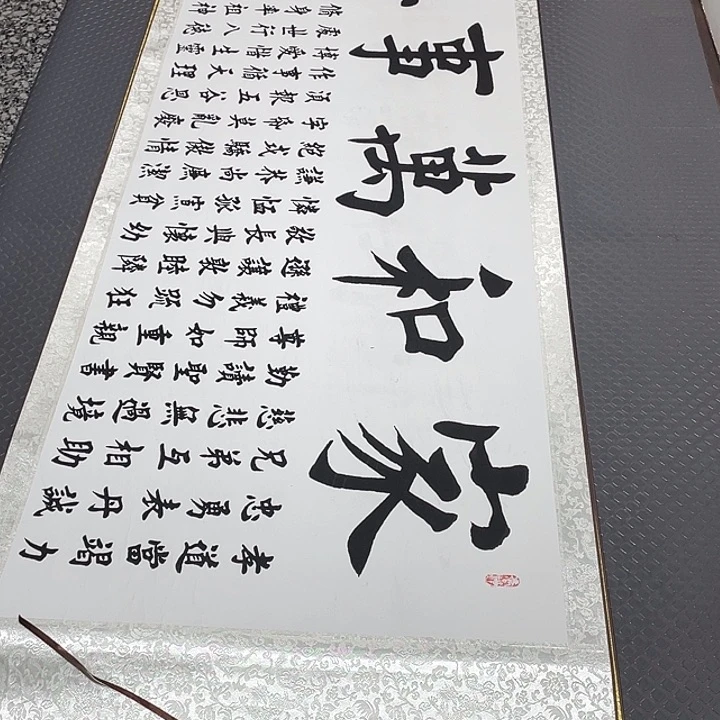 家和萬事
孝道當竭力
忠勇表丹誠
兄弟互相助
慈悲無過境
勤讀聖賢書
尊師如重親
禮義勿疏狂
遜讓敦睦鄰
敬長與懷幼
憐恤孤寡貧
謙恭尚廉潔
絕戒驕傲情
字紙莫亂廢
須報五谷恩
作事循天理
博愛惜生靈
處世行八德
修身率祖神